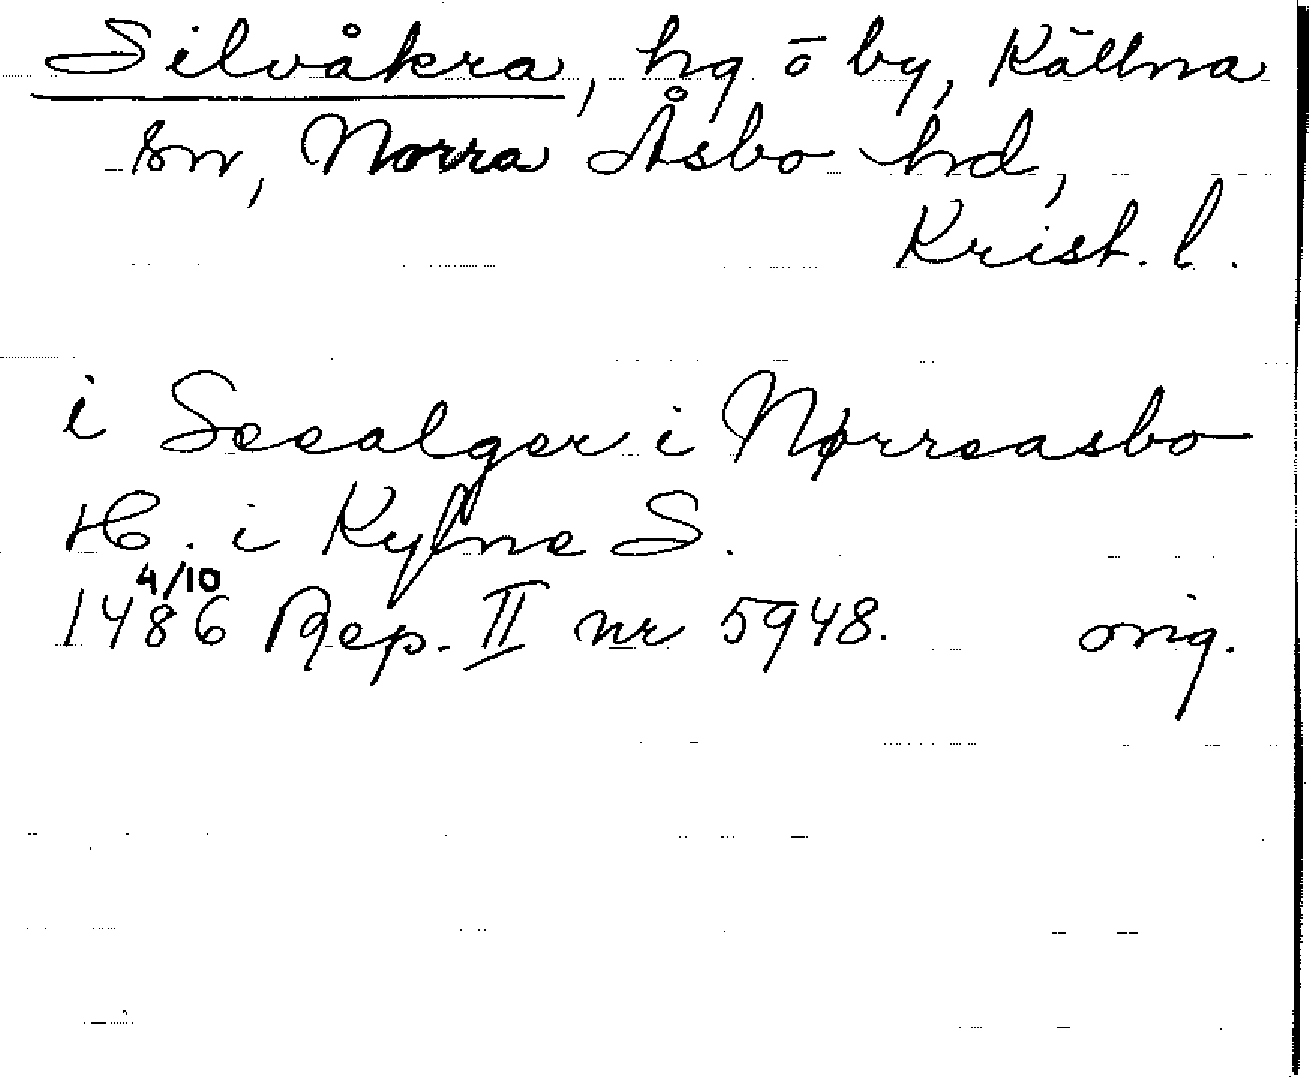 Silvåkra, hg o by, Källna
sn, Norra Åsbo hd,
Krist. l.
i Seealger i Nørreasbo
H. i Kylne S.
1486 4/10 Rep. II nr 5948. orig.